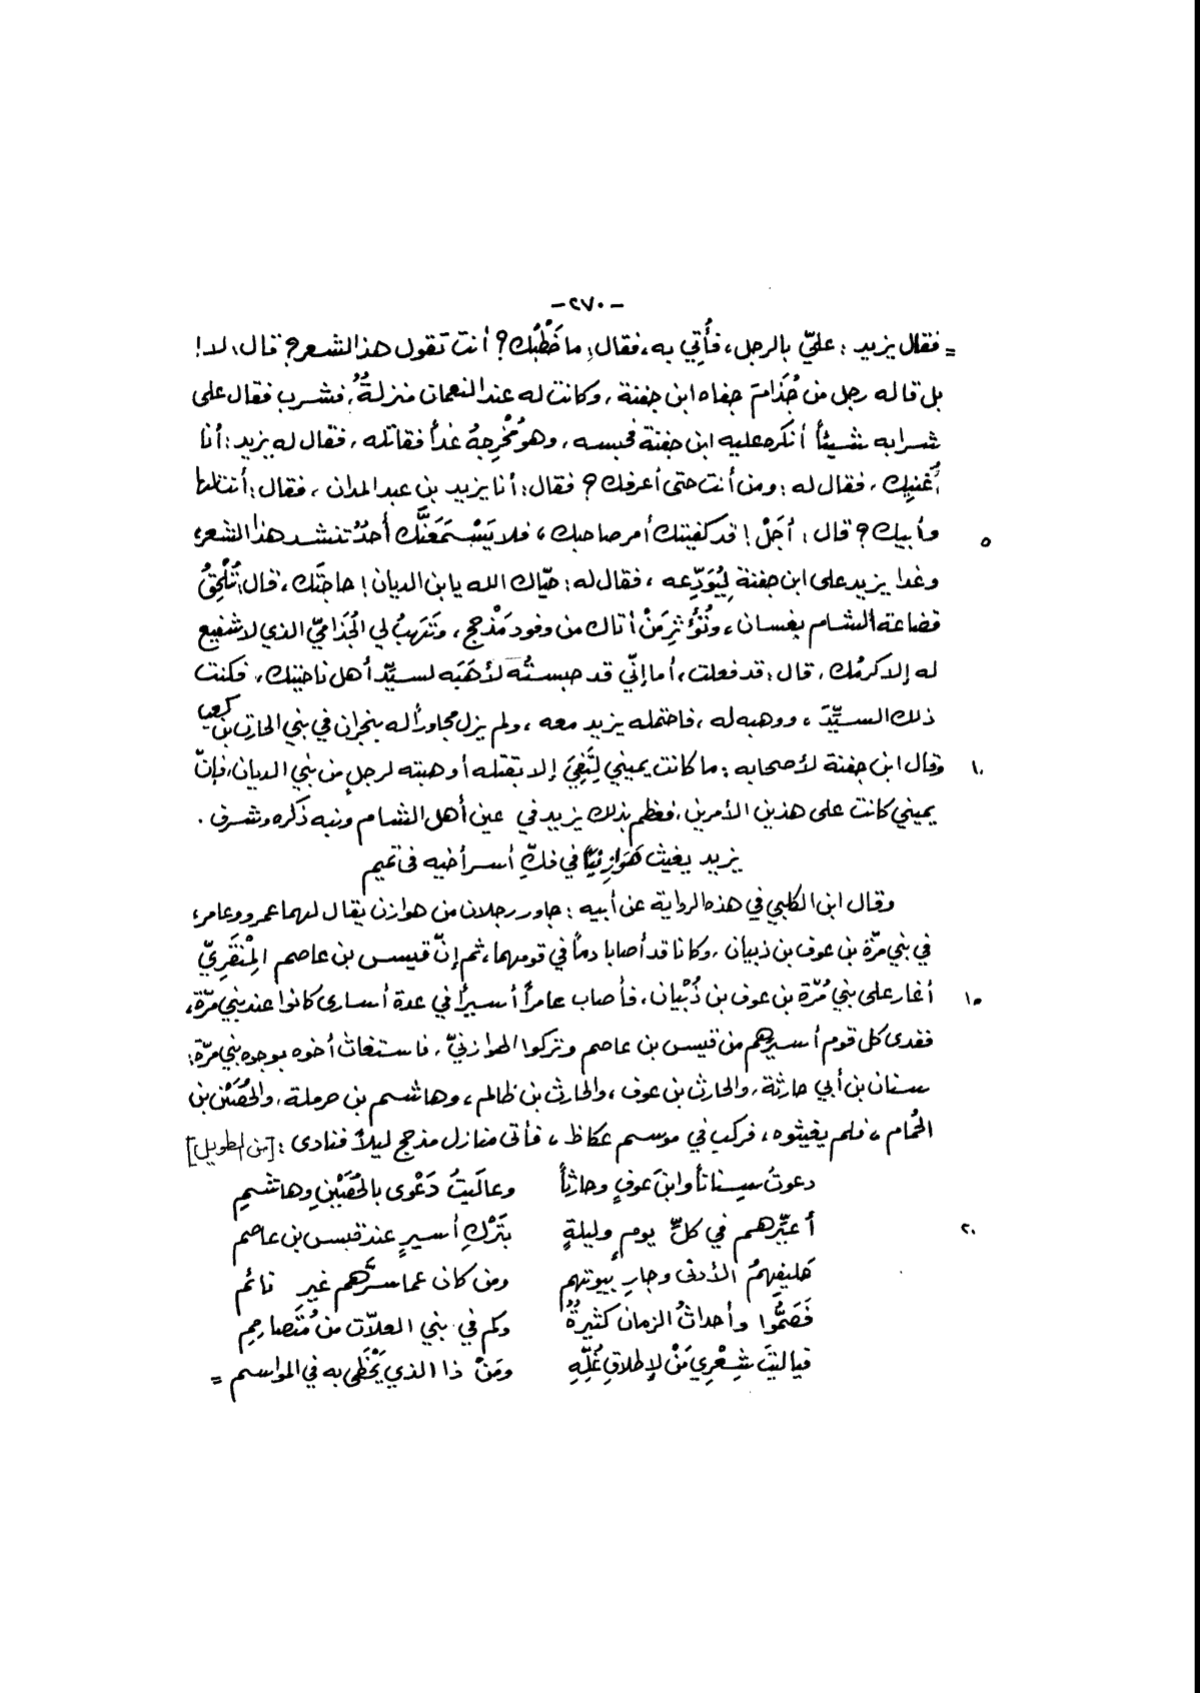 -٢٧٠-
= فقال يزيد : عليّ بالرجل، فأُتِي به، فقال: ما خَطْبُك؟ أنت تقول هذا الشعر؟ قال: لا!
بل قاله رجل من جُذَام جفاه ابن جفنة، وكانت له عند النعمان منزلةٌ، فشرب فقال على
شرابه شيئاً أنكره عليه ابن جفنة فحبسه، وهو مُخْرِجهُ غداً فقاتله، فقال له يزيد: أنا
أُغنيك، فقال له : ومن أنت حتى أعرفك؟ فقال: أنا يزيد بن عبد المدان، فقال: أنت لها
وأبيك؟ قال: أجَلْ! قد كفيتك أمر صاحبك، فلا يَسْمَعَنَّك أحدٌ تنشد هذا الشعر، ٥
وغدا يزيد على ابن جفنة لِيُوَدِّعه، فقال له: حيّاك الله يا بن الديان! حاجتَك، قال: تُلْحِقُ
قضاعة الشام بغسان، وتُؤْثِر مَنْ أتاك من وفود مَذْحج، وتَهَبُ لي الجُذَاميّ الذي لا شفيع
له إلا كرمُك، قال: قد فعلت، أما إنّي قد حبستُه لأهَبَه لسيِّد أهل ناحيتك، فكنت
ذلك السيِّدَ، ووهبه له، فاحتمله يزيد معه، ولم يزل مجاوراً له بنجران في بني الحارث بن كعب
وقال ابن جفنة لأصحابه: ما كانت يميني لِتَفِيَ إلا بقتله أو هبته لرجلٍ من بني الديان، فإنّ ١٠
يميني كانت على هذين الأمرين، فعظم بذلك يزيد في عين أهل الشام ونبه ذكره وشرف.
يزيد يغيث هَوَازِنيّاً في فكِّ أسر أخيه في تميم
وقال ابن الكلبي في هذه الرواية عن أبيه : جاور رجلان من هوازن يقال لهما عمرو وعامر،
في بني مرّة بن عوف بن ذبيان، وكانا قد أصابا دماً في قومهما، ثم إنّ قيس بن عاصم المِنْقَرِيّ
أغار على بني مُرّة بن عوف بن ذُبْيان، فأصاب عامراً أسيراً في عدة أسارى كانوا عند بني مرّة، ١٥
ففدى كل قوم أسيرهم من قيس بن عاصم وتركوا الهوازنيّ، فاستغاث أخوه بوجوه بني مرّة:
سنان بن أبي حارثة، والحارث بن عوف، والحارث بن ظالم، وهاشم بن حرملة، والحُصَيْن بن
الحُمام، فلم يغيثوه، فركب في موسم عكاظ، فأتى منازل مذحج ليلاً فنادى: [من الطويل]
دعوتُ سِناناً وابنَ عَوفٍ وحارثاً وعالَيتُ دَعْوى بالحُصَيْنِ وهاشمِ
أُعَيِّرهم في كلِّ يومٍ وليلةٍ بتَرْكِ أسيرٍ عند قيس بن عاصم ٢٠
حَليفِهمُ الأدنى وجارِ بيوتهم ومن كان عما سرَّهم غير نائم
فَصَمُّوا وأحداثُ الزمان كثيرةٌ وكم في بني العلاّت من مُتَصامِمِ
فيا ليتَ شِعْرِي مَنْ لإطلاقِ غُلِّهِ ومَنْ ذا الذي يَحْظَى به في المواسم =